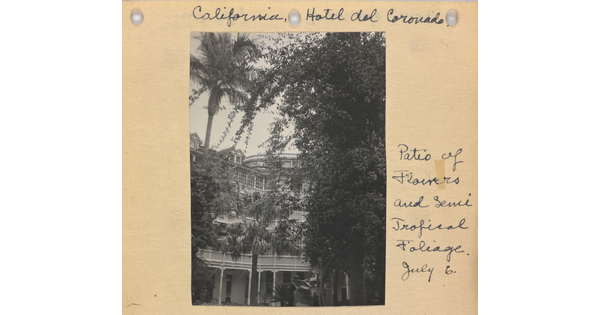 California, Hotel del Coronado.
Patio of
Flowers
and Semi
Tropical
Foliage.
July 6.